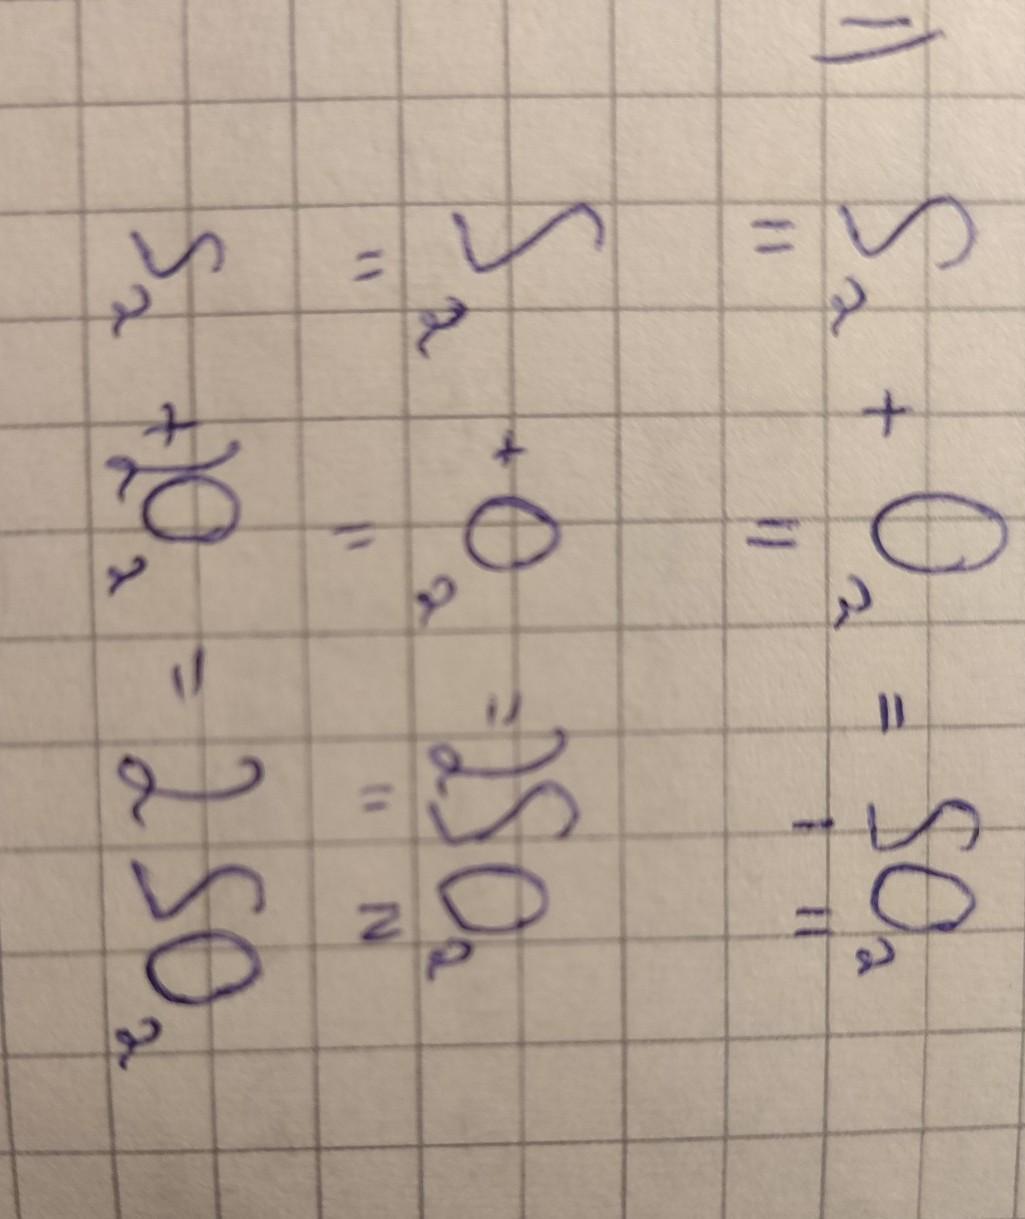 1) S₂ + O₂ = SO₂
= = - =
S₂ + O₂ = 2SO₂
= = = =
S₂ + 2O₂ = 2SO₂